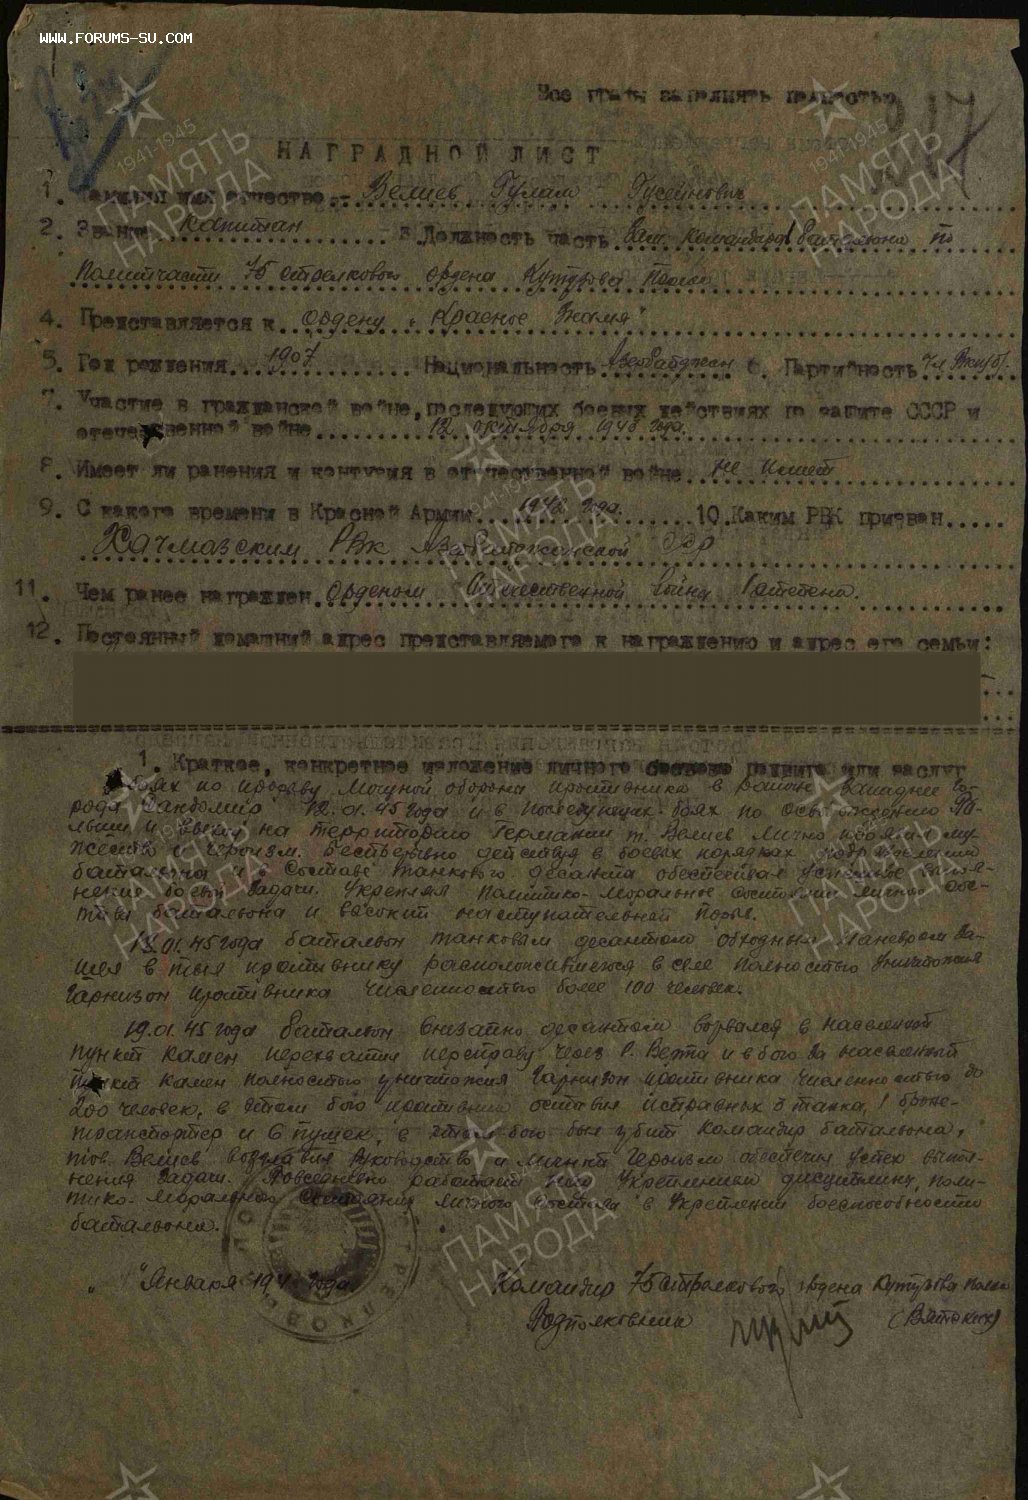 WWW.FORUMS-SU.COM
Все графы заполнять полностью
НАГРАДНОЙ ЛИСТ
1. Фамилия имя отчество Велиев Гулам Гусейнович
2. Звание Капитан 3. Должность часть Зам. командира батальона по
политчасти 75 стрелкового ордена Кутузова полка
4. Представляется к ордену "Красное Знамя"
5. Год рождения 1907 Национальность Азербайджан 6. Партийность чл. ВКП/б/.
7. Участие в гражданской войне, последующих боевых действиях по защите СССР и
отечественной войне 12 октября 1943 года.
8. Имеет ли ранения и контузия в отечественной войне Не имеет
9. С какого времени в Красной Армии года. 10. Каким РВК призван
Хачмазским РВК Азербайджанской ССР
11. Чем ранее награжден Орденом Отечественной Войны
12. Постоянный домашний адрес представляемого к награждению и адрес его семьи:
1. Краткое, конкретное изложение личного боевого подвига или заслуг
В боях по прорыву мощной обороны противника в районе западнее го-
рода Сандомир 12.01.45 года и в последующих боях по освобождению По-
льши и выход на территорию Германии т. Велиев лично проявил му-
жество и героизм. Бесстрашно действуя в боевых порядках подразделений
батальона и в составе танкового десанта обеспечивал успешное выпол-
нение боевой задачи. Укреплял политико-моральное состояние личного сос-
тава батальона и высокий наступательный порыв.
13.01.45 года батальон танковым десантом обходным маневром за-
шел в тыл противнику расположившегося в селе полностью уничтожил
гарнизон противника численностью более 100 человек.
19.01.45 года батальон внезапно десантом ворвался в населенный
пункт Камен перехватил переправу через р. Варта и в бою за населенный
пункт Камен полностью уничтожил гарнизон противника численностью до
200 человек, в этом бою противник оставил исправных 3 танка, 1 броне-
транспортер и 6 пушек, в этом бою был убит командир батальона,
тов. Велиев возглавил руководство и личным героизмом обеспечил успех выпол-
нения задачи. Повседневно работает над укреплением дисциплины, поли-
тико-морального состояния личного состава в укреплении боеспособности
батальона.
" " Января 194 года Командир 75 стрелкового ордена Кутузова полка
Подполковник (Вятских)
1941-1945
ПАМЯТЬ
НАРОДА